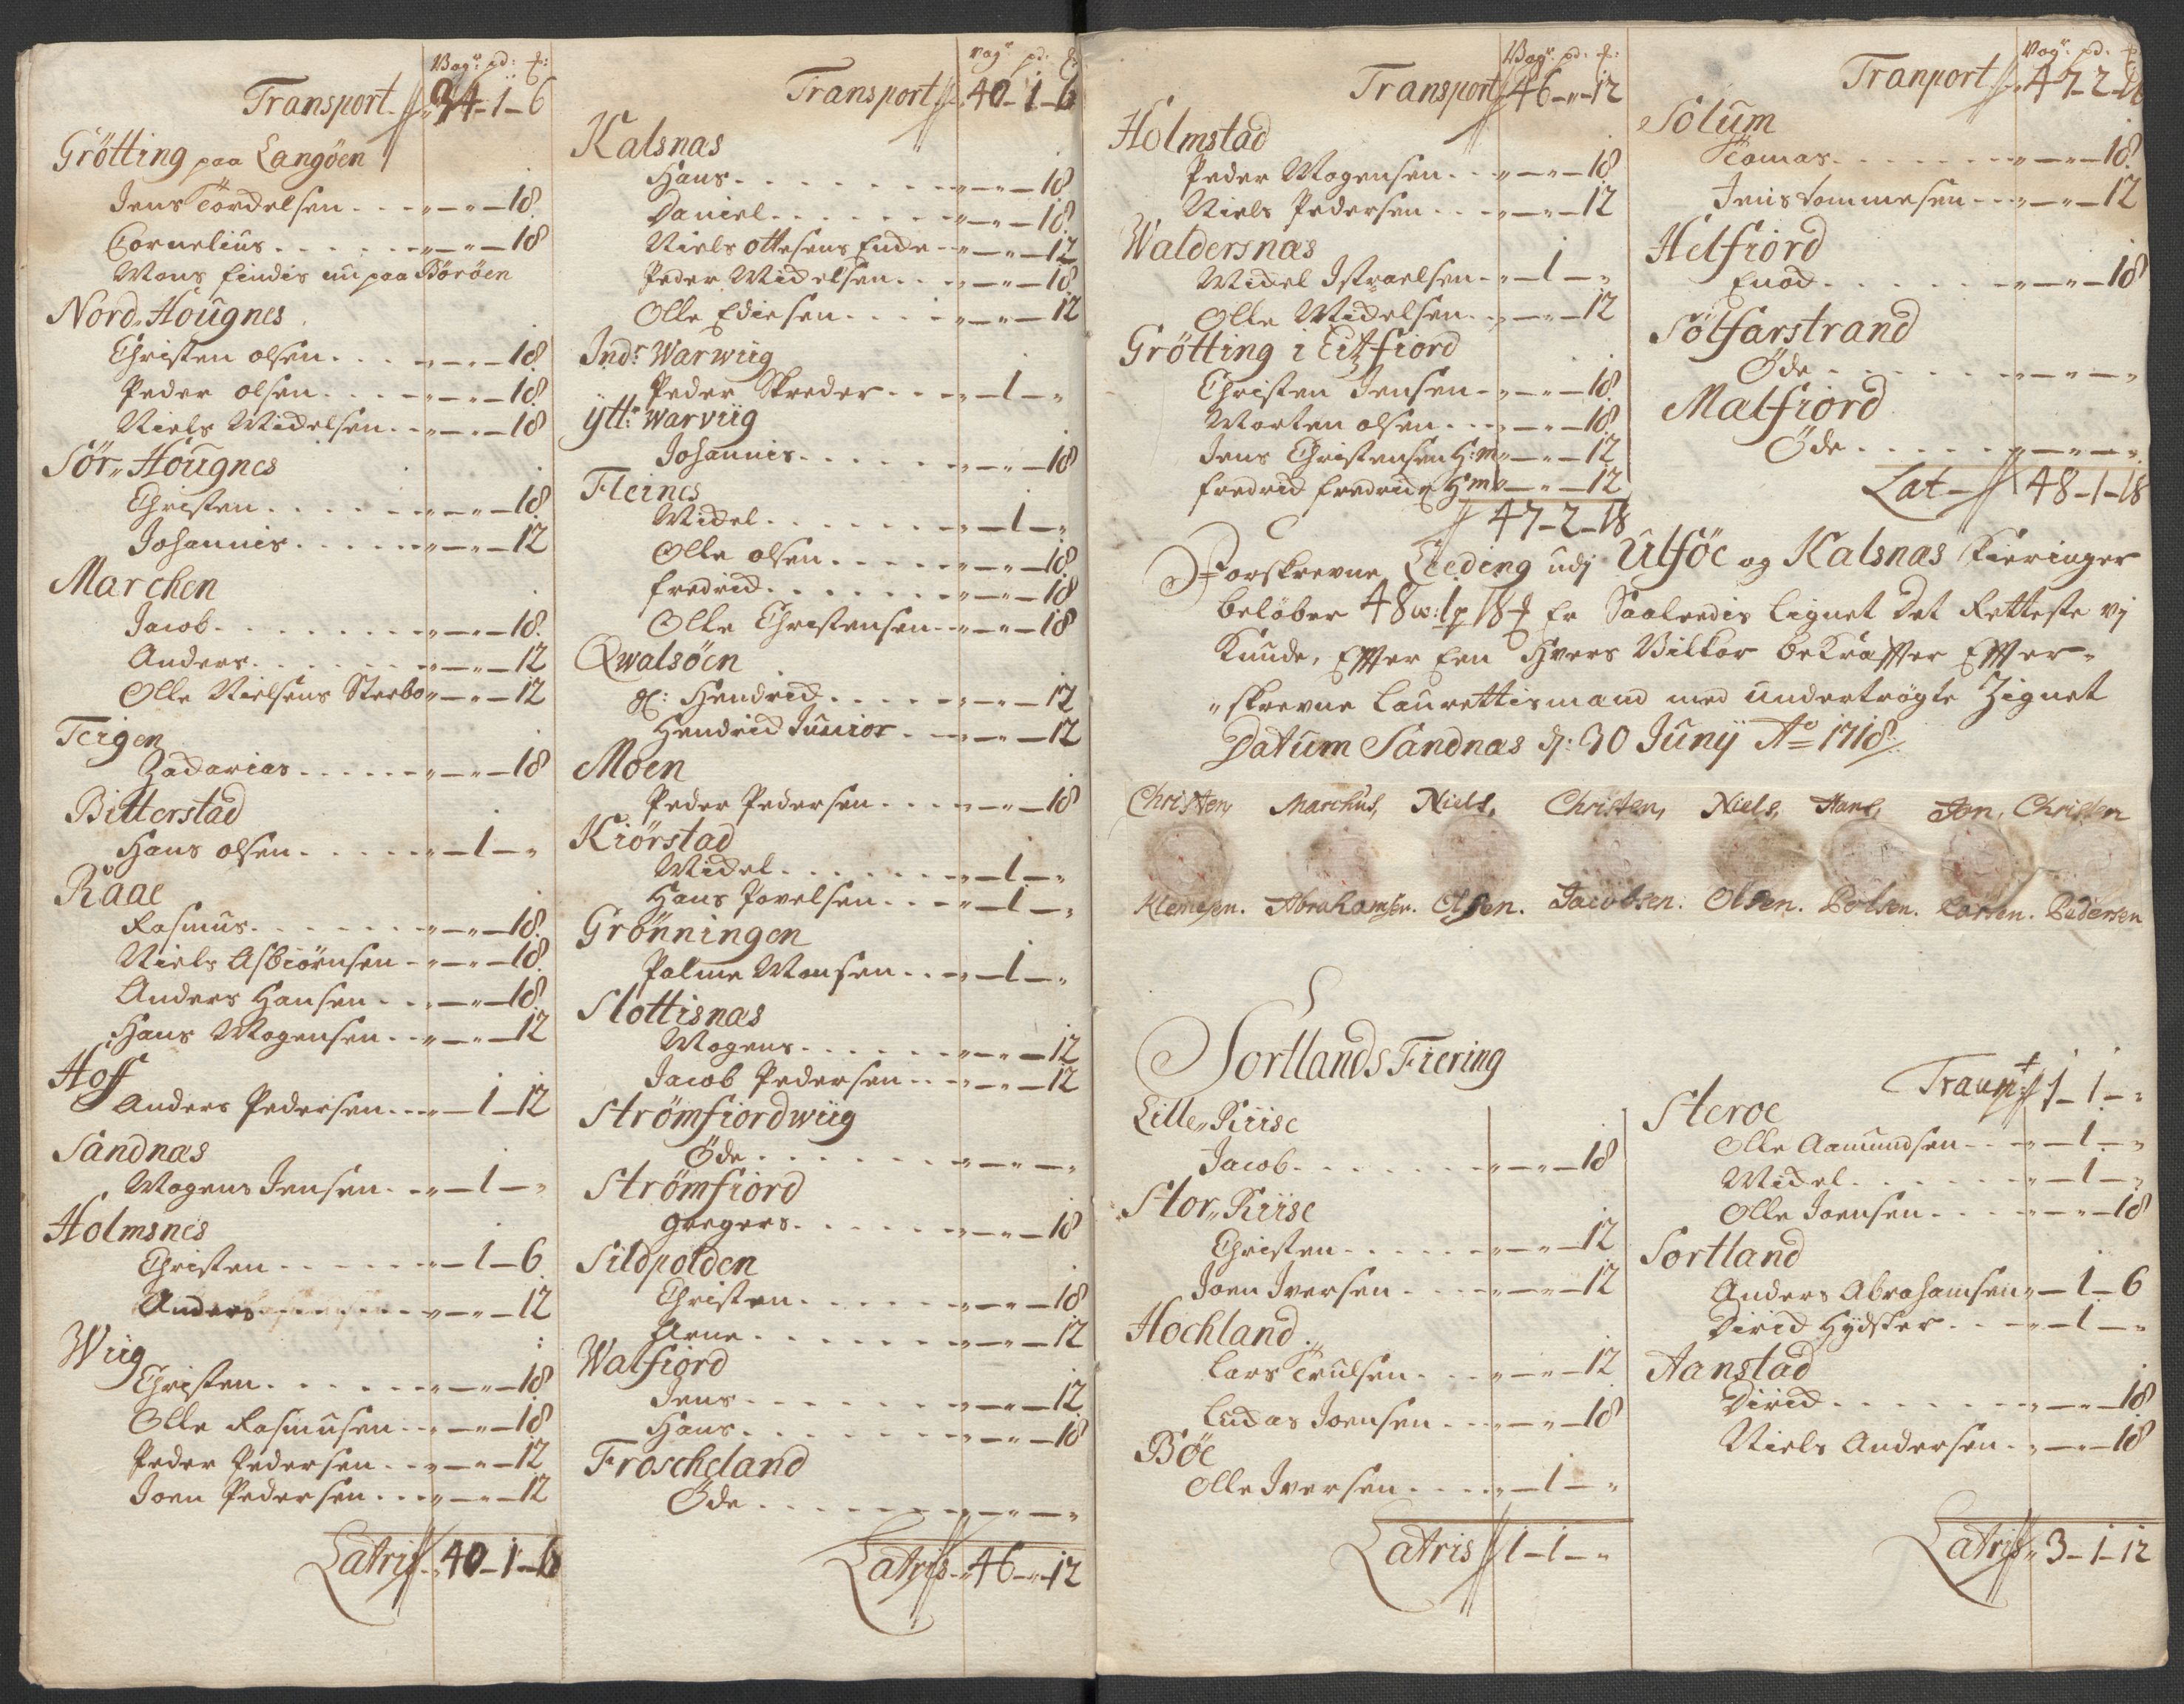 Vogr: pd: ℔:
Transport 34-1-6
Grötting paa Langöen
Jens Tordelsen - - - " - " - 18
Cornelius - - - " - " - 18
Mons findis nu paa Böröen
Nord, Hougnes
Christen olsen - - - " - " - 18
Peder olsen - - - " - " - 18
Niels Michelsen - - " - " - 18
Sör, Hougnes
Christen - - - " - " - 18
Johannis - - - " - " - 12
Marchen
Jacob - - - " - " - 18
Anders - - - " - " - 12
Olle Nielsens Sterbo " - " - 12
Teigen
Zacharias - - - " - " - 18
Bitterstad
Hans olsen - - - " - 1 - "
Raae
Rasmus - - - " - " - 18
Niels Asbiörnsen - " - " - 18
Anders Hansen - - " - " - 18
Hans Mogensen - - " - " - 12
Hoff
Anders Pedersen - - " - 1 - 12
Sandnæs
Mogens Jensen - - " - 1 - "
Holmsnes
Christen - - - " - 1 - 6
Anders - - - " - " - 12
Wiig
Christen - - - " - " - 18
Olle Rasmusen - - " - " - 18
Peder Pedersen - - " - " - 12
Joen Pedersen - - " - " - 12
Latris 40-1-6
Vogr pd: ℔:
Transport 40-1-6
Kalsnæs
Hans - - - " - " - 18
Daniel - - - " - " - 18
Niels Ottesens Encke - " - " - 12
Peder Michelsen - - " - " - 18
Olle Edissen - - - " - " - 12
Indr: Warwiig
Peder Skreder - - - " - 1 - "
ÿttr: Warviig
Johannis - - - " - " - 18
Fleines
Michel - - - " - 1 - "
Olle olsen - - - " - " - 18
fredrich - - - " - " - 18
Olle Christensen - - " - " - 18
Qwalsöen
gl: Hendrich - - - " - " - 12
Hendrich Junior - - " - " - 12
Moen
Peder Pedersen - - - " - " - 18
Kiörstad
Michel - - - " - 1 - "
Hans Povelsen - - - " - 1 - "
Grönningen
Palme Monsen - - " - 1 - "
Slottisnæs
Mogens - - - " - " - 12
Jacob Pedersen - - " - " - 12
Strömfiordwiig
Öde - - - " - " - "
Strömfiord
Gregers - - - " - " - 18
Sildpolden
Christen - - - " - " - 18
Arne - - - " - " - 12
Walfiord
Jens - - - " - " - 12
Hans - - - " - " - 18
Froscheland
Öde - - - " - " - "
Latris 46-"-12
Vogr: pd: ℔:
Transport 46-"-12
Holmstad
Peder Mogensen - - " - " - 18
Niels Pedersen - - " - " - 12
Waldersnæs
Michel Istraelsen - " - 1 - "
Olle Michelsen - " - " - 12
Grötting i Eitfiord
Christen Jensen - " - " - 18
Morten olsen - - " - " - 18
Jens Christensen H:m " - " - 12
fredrich fredrichs H:m " - " - 12
47-2-18
Vogr: pd: ℔
Tranport 47-2-18
Solum
Tomas - - - " - " - 18
Jens Tommesen - - " - " - 12
Helfiord
Enoch - - - " - " - 18
Sölfarstrand
Öde - - - " - " - "
Malfiord
Öde - - - " - " - "
Lat- 48-1-18
Forskrevne Leeding udj Ulföe og Kalsnæs Fieringer
belöber 48 w: 1 p 18 ℔ Er Saaledis lignet Det Retteste vj
Kunde, Efter Een Hvers Vilkor bekræfter Efter-
"skrevne Laurettismænd med undertrögte Zignet
Datum Sandnæs d: 30 Junij Ao 1718
Christen, Marchus, Niels, Christen, Niels, Hans, Jon, Christen
Klemesen. Abrahamsen. Olsen. Jacobsen. Olsen. Polsen. Larsen. Pedersen
Sortlands Fiering
Lille, Kiise
Jacob - - - " - " - 18
Stor, Kiise
Christen - - - " - " - 12
Joen Iversen - - - " - " - 12
Hochland
Lars Trulsen - - - " - " - 12
Ludas Joensen - - " - " - 18
Böe
Olle Iversen - - - " - 1 - "
Latris 1-1-"
Transpt 1-1-"
Steroe
Olle Aamundsen - - " - 1 - "
Michel - - - " - 1 - "
Olle Joensen - - - " - " - 18
Sortland
Anders Abrahamsen " - 1 - 6
Dirich Hÿdster - - " - 1 - "
Aanstad
Dirich - - - " - " - 18
Niels Andersen - - " - " - 18
Latris 3-1-12